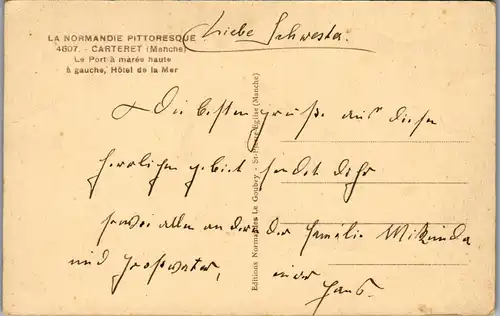 LA NORMANDIE PITTORESQUE
4607. - CARTERET (Manche)
Le Port à marée haute
à gauche, Hôtel de la Mer
Liebe Schwester.
Die besten Grüße aus dieser
herrlichen Gebiet sendet Dir
sowie allen anderen der Familie Mikinda
und Großvater,
Hans.
Editions Normandes Le Goubey - St-Pierre-Eglise (Manche)